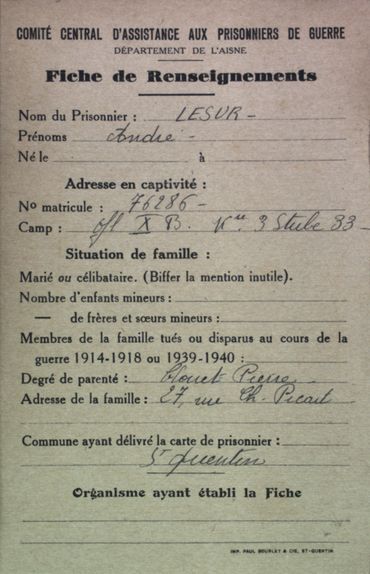 COMITÉ CENTRAL D'ASSISTANCE AUX PRISONNIERS DE GUERRE
DÉPARTEMENT DE L'AISNE
Fiche de Renseignements
Nom du Prisonnier : LESUR -
Prénoms André -
Né le à
Adresse en captivité :
No matricule : 76286 -
Camp : Ofl X B. Kie 3 Stube 33 -
Situation de famille :
Marié ou célibataire. (Biffer la mention inutile).
Nombre d'enfants mineurs :
— de frères et sœurs mineurs :
Membres de la famille tués ou disparus au cours de la
guerre 1914-1918 ou 1939-1940 :
Degré de parenté : Pierre
Adresse de la famille : 27, rue Ch. Picart
Commune ayant délivré la carte de prisonnier :
St Quentin
Organisme ayant établi la Fiche
IMP. PAUL BOURLET & CIE, ST-QUENTIN